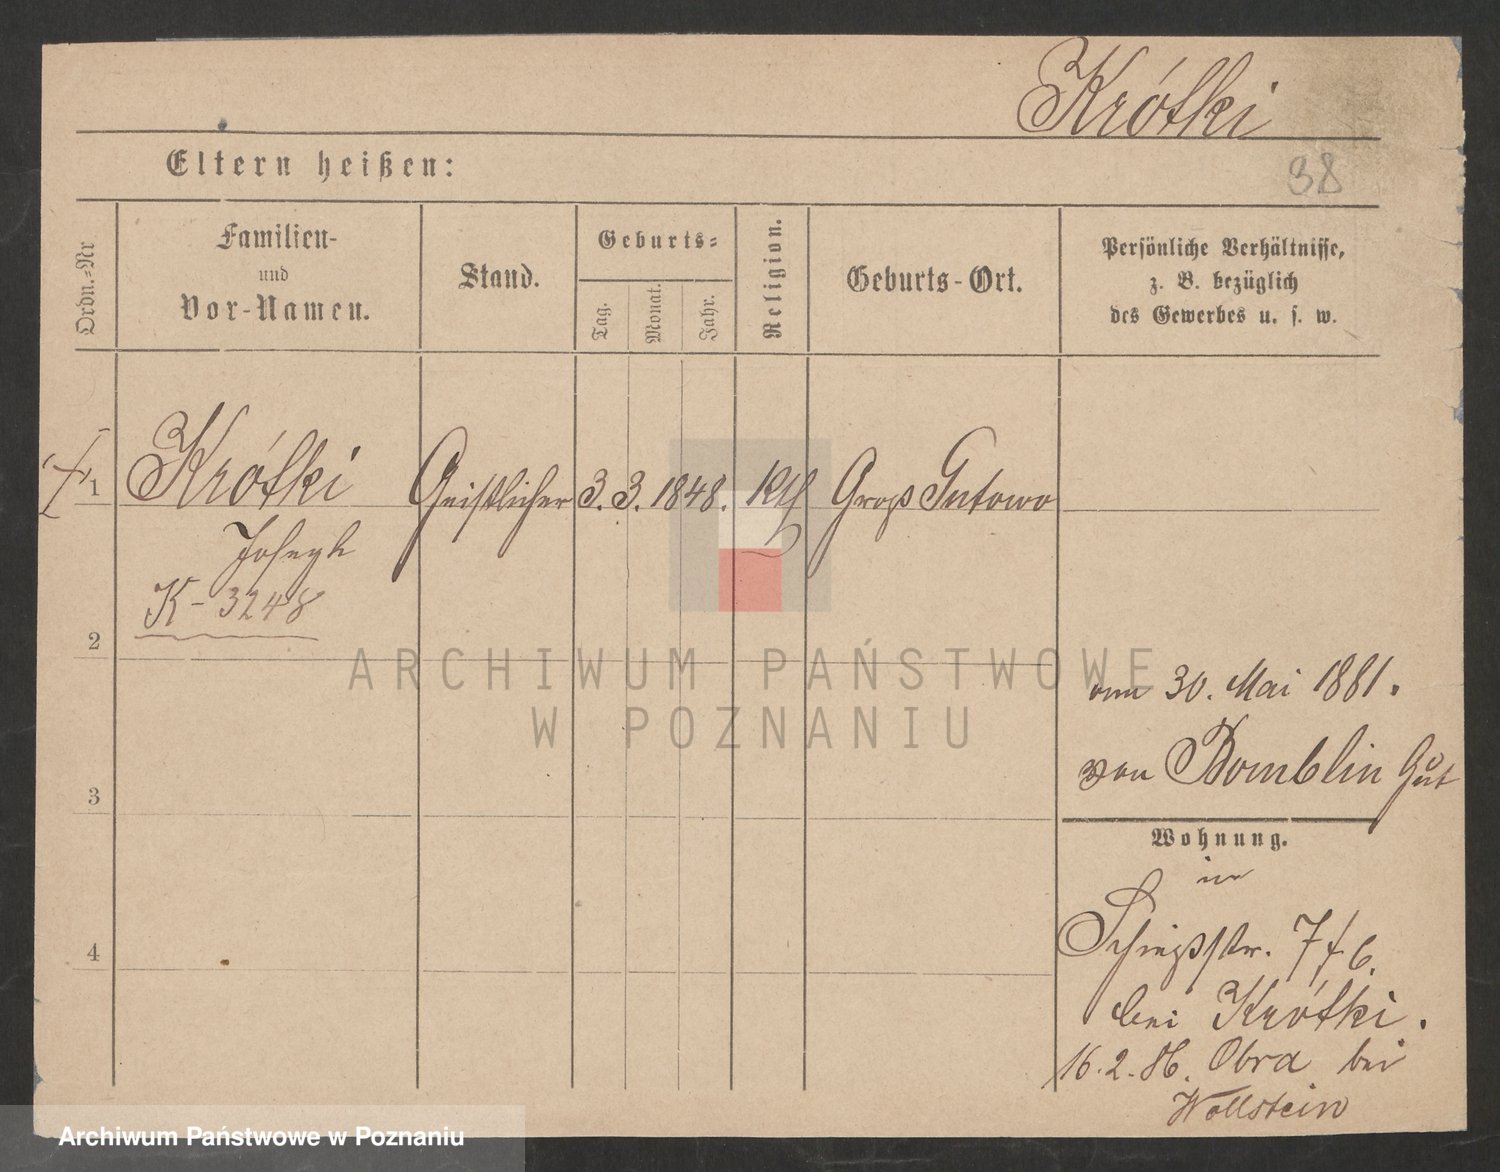 Krótki
38
Eltern heißen:
Ordn.=Nr
Familien-
und
Vor-Namen.
Stand.
Geburts=
Tag.
Monat.
Jahr.
Religion.
Geburts-Ort.
Persönliche Verhältnisse,
z. B. bezüglich
des Gewerbes u. s. w.
1
Krótki Geistlicher 3. 3. 1848. Kth Groß Gutowo
Joseph
K-3248
2
ARCHIWUM PAŃSTWOWE
W POZNANIU
30. Mai 1881.
von Bomblin Gut
3
Wohnung.
in
Schießstr. 7
bei Krótki.
4
16.2.86. Obra bei
Wollstein
Archiwum Państwowe w Poznaniu